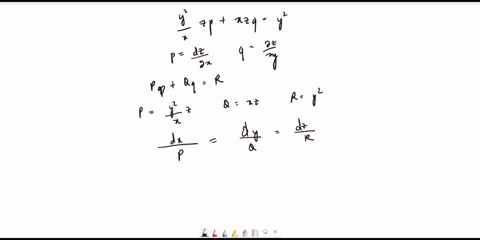 y²/x zp + xzq = y²
p = dz/∂x   q = ∂z/∂y
Pp + Qq = R
P = y²/x z   Q = xz   R = y²
dx/P = dy/Q = dz/R